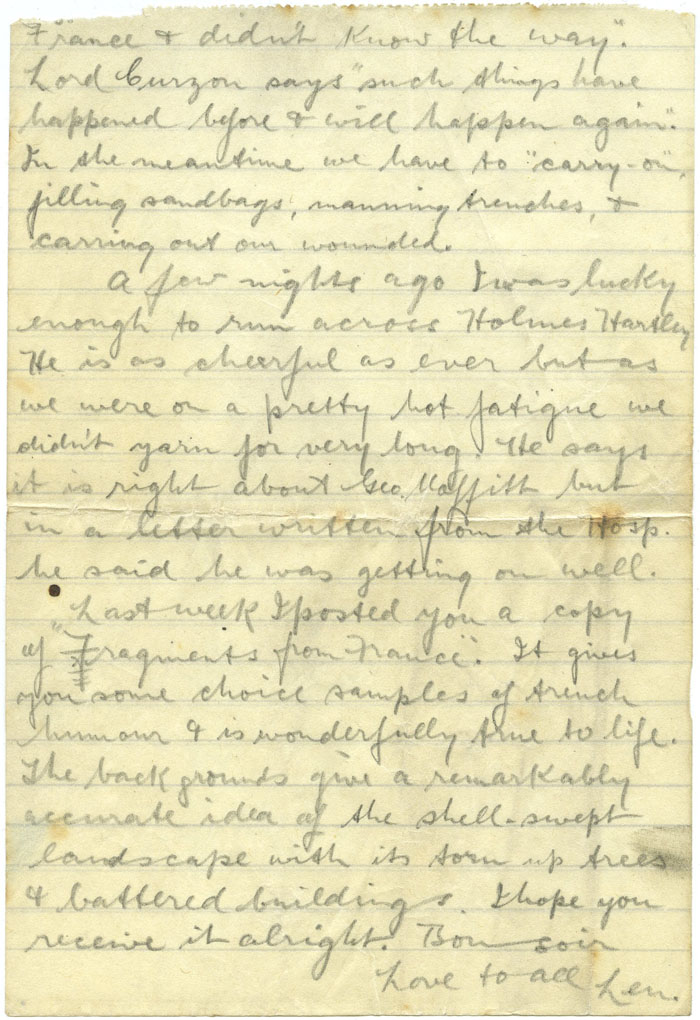 France & didn't know the way".
Lord Curzon says "such things have
happened before & will happen again".
In the meantime we have to "carry-on",
filling sandbags, manning trenches, &
carring out our wounded.
A few nights ago I was lucky
enough to run across Holmes Hartley
He is as cheerful as ever but as
we were on a pretty hot fatigue we
didn't yarn for very long. He says
it is right about Geo. Maffitt but
in a letter written from the Hosp.
he said he was getting on well.
Last week I posted you a copy
of "Fragments from France". It gives
you some choice samples of trench
humour & is wonderfully true to life.
The backgrounds give a remarkably
accurate idea of the shell-swept
landscape with its torn up trees
& battered buildings. I hope you
receive it alright. Bon soir
Love to all Len.